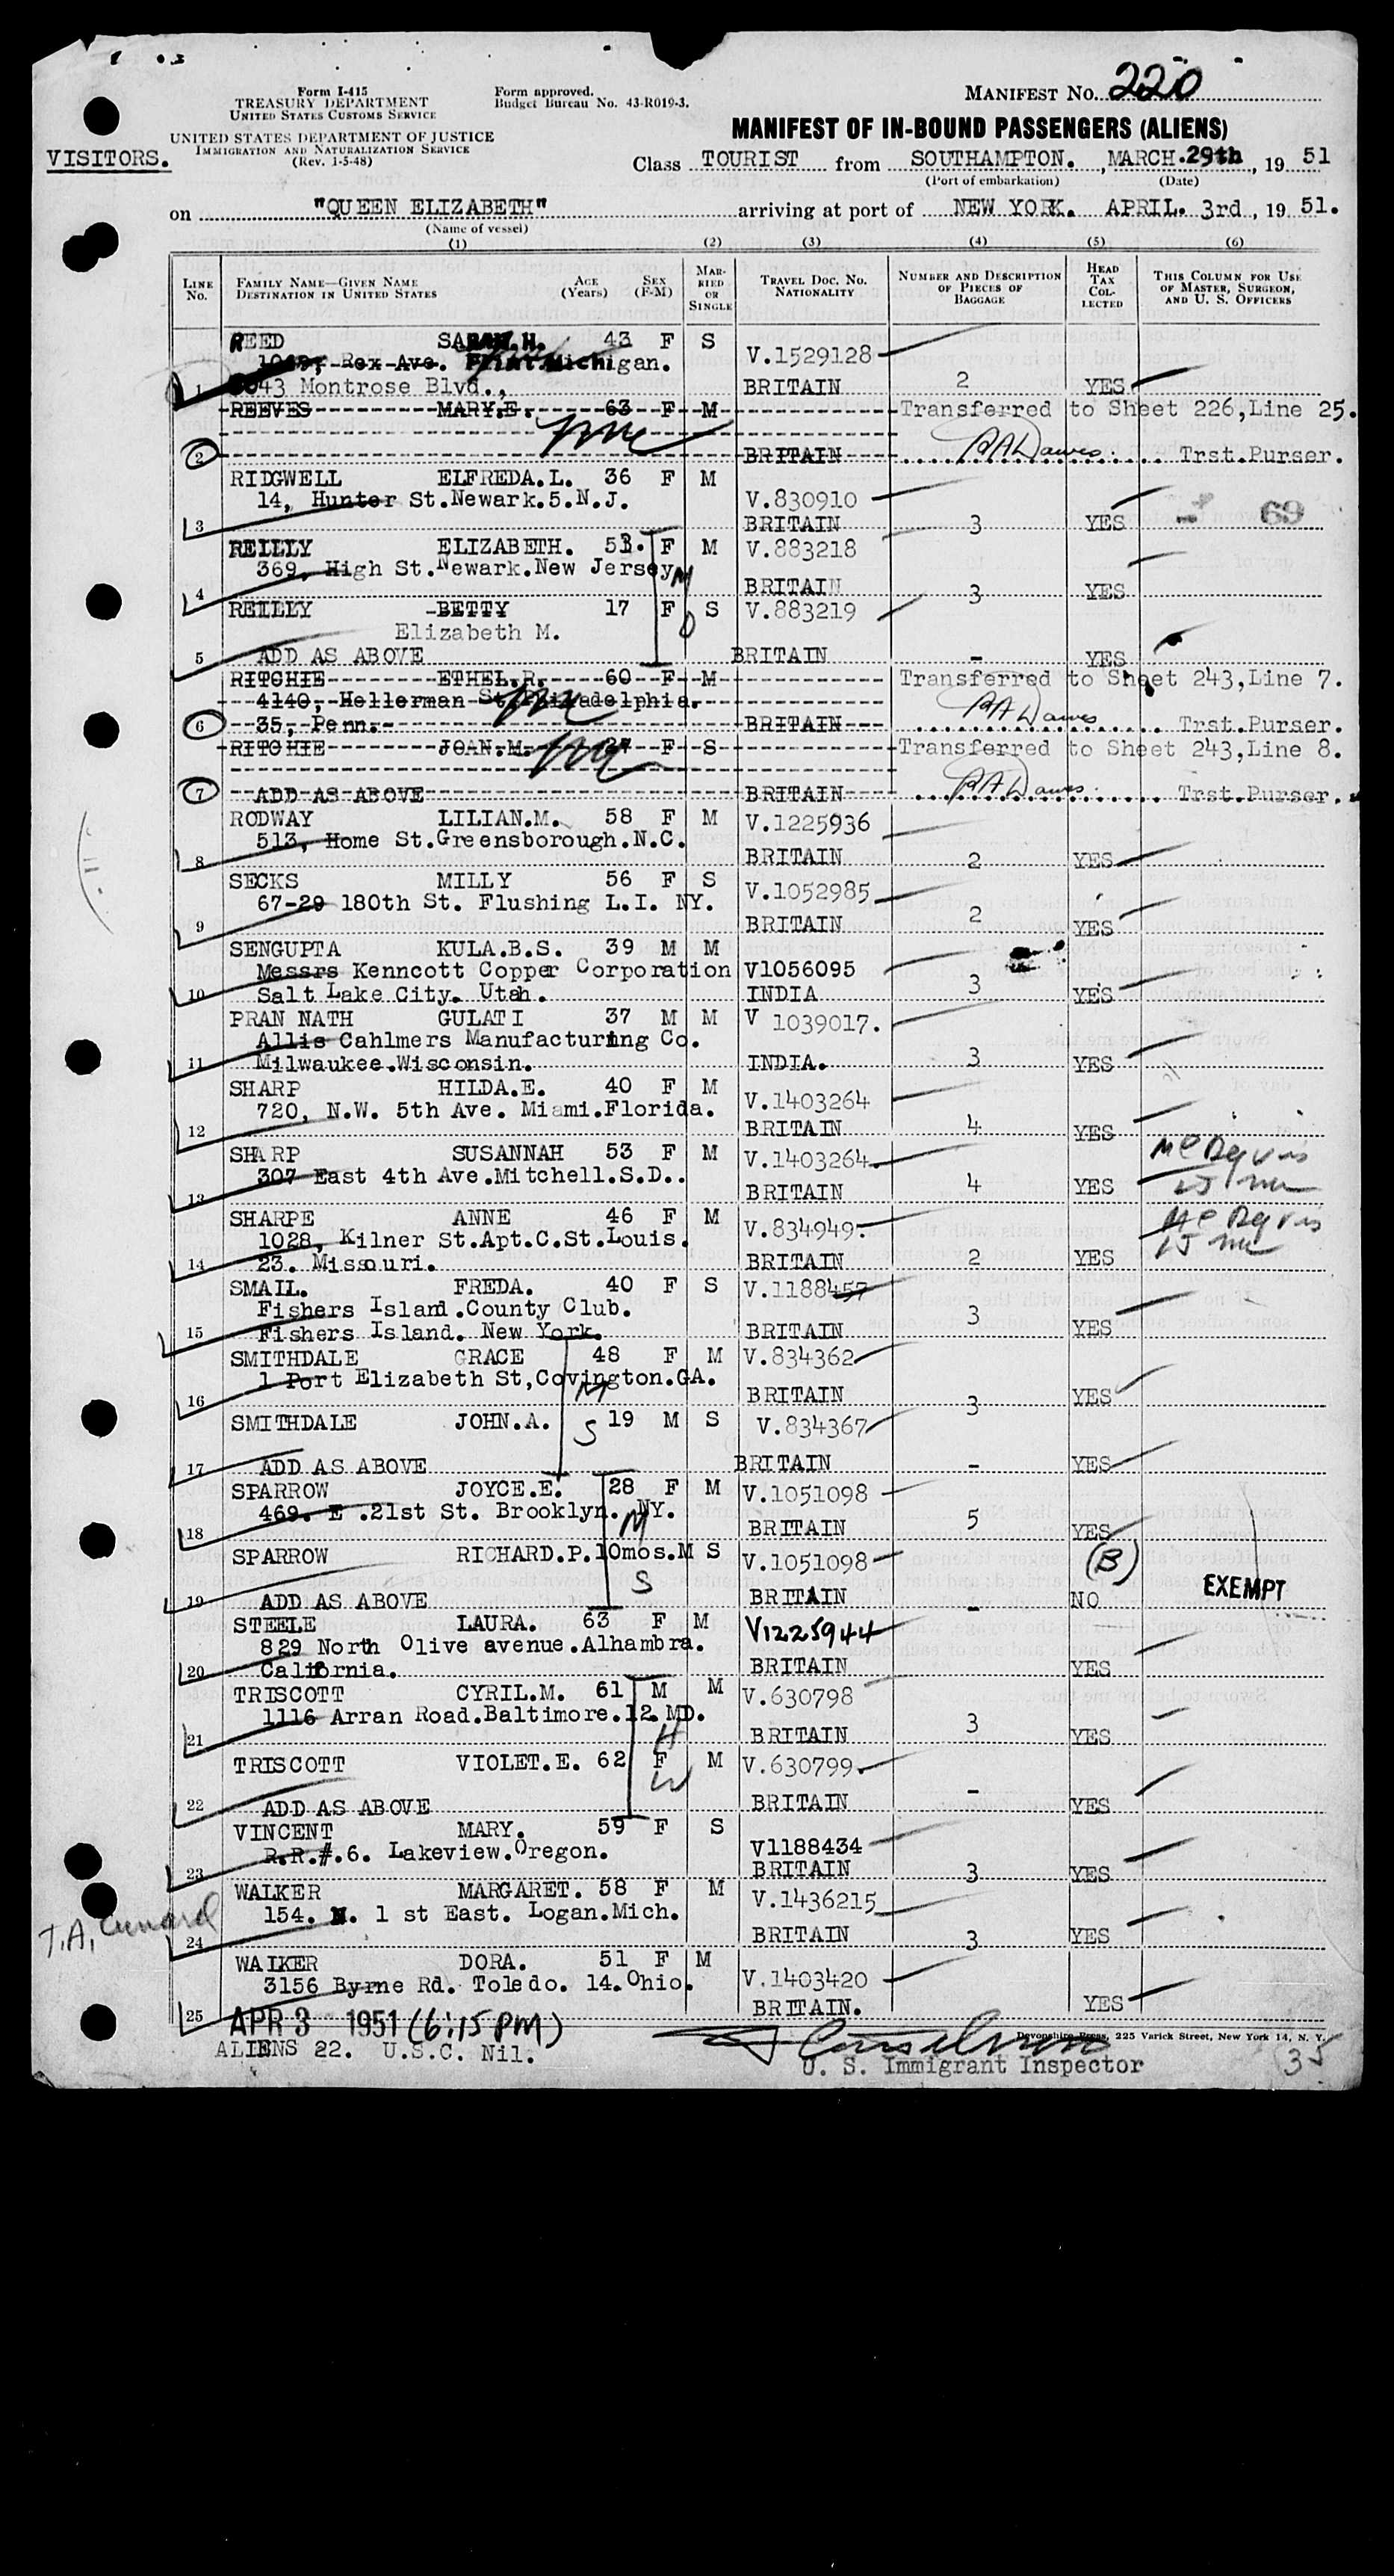 Form I-415
TREASURY DEPARTMENT
UNITED STATES CUSTOMS SERVICE
Form approved.
Budget Bureau No. 43-R019-3.
MANIFEST NO. 220
UNITED STATES DEPARTMENT OF JUSTICE
IMMIGRATION AND NATURALIZATION SERVICE
(Rev. 1-5-48)
VISITORS.
MANIFEST OF IN-BOUND PASSENGERS (ALIENS)
Class TOURIST from SOUTHAMPTON. , MARCH.29th , 19 51
(Port of embarkation) (Date)
on "QUEEN ELIZABETH" arriving at port of NEW YORK. APRIL. 3rd , 19 51.
(Name of vessel)
(1) (2) (3) (4) (5) (6)
LINE NO. FAMILY NAME—GIVEN NAME DESTINATION IN UNITED STATES AGE (Years) SEX (F-M) MARRIED OR SINGLE TRAVEL DOC. NO. NATIONALITY NUMBER AND DESCRIPTION OF PIECES OF BAGGAGE HEAD TAX COLLECTED THIS COLUMN FOR USE OF MASTER, SURGEON, AND U. S. OFFICERS
REED SARAH.H. 43 F S V.1529128
1049, Rex Ave. Flint Michigan.
1 3043 Montrose Blvd., BRITAIN 2 YES
REEVES MARY.E. 63 F M Transferred to Sheet 226,Line 25.
2 BRITAIN RADawes. Trst.Purser.
RIDGWELL ELFREDA.L. 36 F M
14, Hunter St.Newark.5.N.J. V.830910
3 BRITAIN 3 YES 69
REILLY ELIZABETH. 53. F M V.883218
369, High St.Newark.New Jersey M
4 BRITAIN 3 YES
REILLY BETTY 17 F S V.883219
Elizabeth M. D
5 ADD AS ABOVE BRITAIN - YES
RITCHIE ETHEL.R. 60 F M Transferred to Sheet 243,Line 7.
4140, Hellerman St.Philadelphia.
6 35, Penn. BRITAIN RADawes Trst.Purser.
RITCHIE JOAN.M. 24 F S Transferred to Sheet 243,Line 8.
7 ADD AS ABOVE BRITAIN RADawes. Trst.Purser.
RODWAY LILIAN.M. 58 F M V.1225936
513, Home St.Greensborough.N.C.
8 BRITAIN 2 YES
SECKS MILLY 56 F S V.1052985
67-29 180th St. Flushing L.I. NY.
9 BRITAIN 2 YES
SENGUPTA KULA.B.S. 39 M M
Messrs Kenncott Copper Corporation V1056095
10 Salt Lake City. Utah. INDIA 3 YES
PRAN NATH GULATI 37 M M V 1039017.
Allis Cahlmers Manufacturing Co.
11 Milwaukee.Wisconsin. INDIA. 3 YES
SHARP HILDA.E. 40 F M V.1403264
720, N.W. 5th Ave. Miami.Florida.
12 BRITAIN 4 YES
SHARP SUSANNAH 53 F M V.1403264
307 East 4th Ave.Mitchell.S.D..
13 BRITAIN 4 YES
SHARPE ANNE 46 F M V.834949.
1028, Kilner St.Apt.C.St.Louis.
14 23. Missouri. BRITAIN 2 YES
SMAIL. FREDA. 40 F S V.1188457
Fishers Island.County Club.
15 Fishers Island. New York. BRITAIN 3 YES
SMITHDALE GRACE 48 F M V.834362
1 Port Elizabeth St,Covington.GA. M
16 BRITAIN 3 YES
SMITHDALE JOHN.A. 19 M S V.834367
S
17 ADD AS ABOVE BRITAIN - YES
SPARROW JOYCE.E. 28 F M V.1051098
469. E .21st St. Brooklyn. NY. M
18 BRITAIN 5 YES
SPARROW RICHARD.P. 10mos.M S V.1051098 (B)
S EXEMPT
19 ADD AS ABOVE BRITAIN - NO
STEELE LAURA. 63 F M V1225944
829 North Olive avenue.Alhambra.
20 California. BRITAIN YES
TRISCOTT CYRIL.M. 61 M M V.630798
1116 Arran Road.Baltimore.12.MD.
21 H BRITAIN 3 YES
TRISCOTT VIOLET.E. 62 F M V.630799.
W
22 ADD AS ABOVE BRITAIN - YES
VINCENT MARY. 59 F S V1188434
R.R.#.6. Lakeview.Oregon.
23 BRITAIN 3 YES
WALKER MARGARET. 58 F M V.1436215
154. N. 1 st East. Logan.Mich.
T.A, Cunard
24 BRITAIN 3 YES
WALKER DORA. 51 F M
3156 Byrne Rd. Toledo. 14.Ohio. V.1403420
25 BRITAIN. YES
APR 3 1951 (6:15 PM)
Devonshire Press, 225 Varick Street, New York 14, N. Y.
ALIENS 22. U.S.C. Nil.
U. S. Immigrant Inspector
35